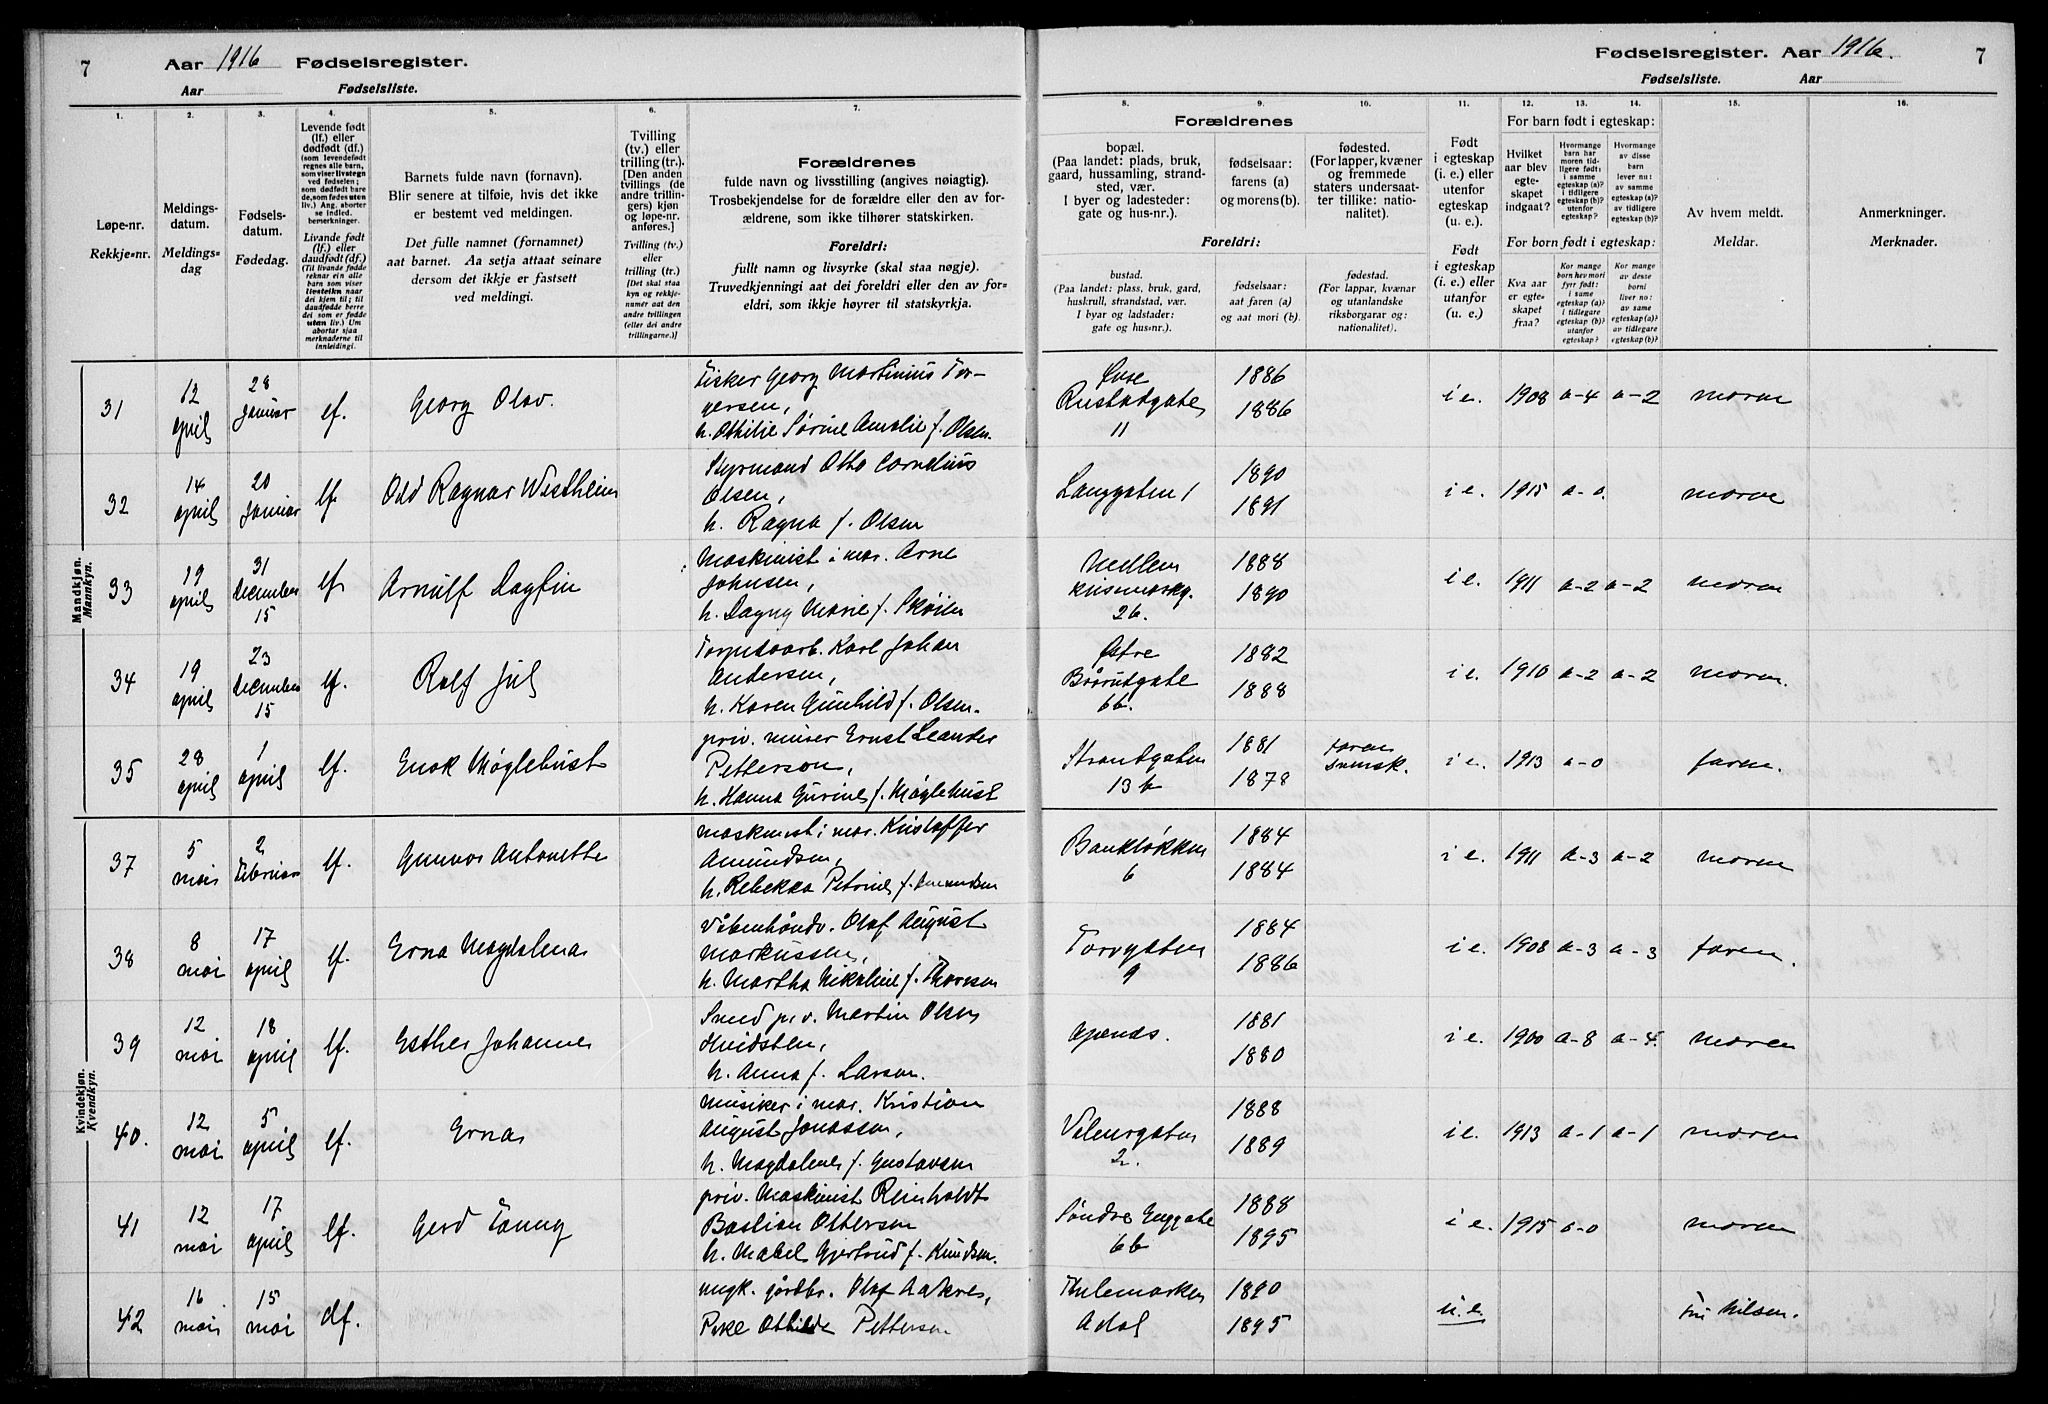 7
Aar 1916 Fødselsregister.
Aar Fødselsliste.
Fødselsregister. Aar 1916.
Fødselsliste. Aar
7
1. 2. 3. 4. 5. 6. 7. 8. 9. 10. 11. 12. 13. 14. 15. 16.
Løpe-nr.
Rekkje=nr.
Meldings-
datum.
Meldings=
dag
Fødsels-
datum.
Fødedag.
Levende født
(lf.) eller
dødfødt (df.)
(som levendefødt
regnes alle barn,
som viser livstegn
ved fødselen;
som dødfødt bare
de, som fødes uten
liv.) Ang. aborter
se indled.
bemerkninger.
Livande født
(lf.) eller
daudfødt (df.)
(Til livande fødde
reknar ein alle
barn som viser
livsteikn naar
dei kjem til; til
daudfødde berre
dei som er fødde
utan liv.) Um
abortar sjaa
merknaderne til
innleidingi.
Barnets fulde navn (fornavn).
Blir senere at tilføie, hvis det ikke
er bestemt ved meldingen.
Det fulle namnet (fornamnet)
aat barnet. Aa setja attaat seinare
dersom det ikkje er fastsett
ved meldingi.
Tvilling
(tv.) eller
trilling (tr.).
[Den anden
tvillings (de
andre trillin-
gers) kjøn
og løpe-nr.
anføres.]
Tvilling (tv.)
eller
trilling (tr.)
[Det skal staa
kyn og rekkje-
numer aat den
andre tvillingen
(eller dei andre
trillingarne.)]
Forældrenes
fulde navn og livsstilling (angives nøiagtig).
Trosbekjendelse for de forældre eller den av for-
ældrene, som ikke tilhører statskirken.
Foreldri:
fullt namn og livsyrke (skal staa nøgje).
Truvedkjenningi aat dei foreldri eller den av for=
eldri, som ikkje høyrer til statskyrkja.
Forældrenes
bopæl.
(Paa landet: plads, bruk,
gaard, hussamling, strand-
sted, vær.
I byer og ladesteder:
gate og hus-nr.).
fødselsaar:
farens (a)
og morens (b).
fødested.
(For lapper, kvæner
og fremmede
staters undersaat-
ter tillike: natio-
nalitet).
Foreldri:
bustad.
(Paa landet: plass, bruk, gard,
huskrull, strandstad, vær.
I byar og ladstader:
gate og hus=nr.).
fødselsaar:
aat faren (a)
og aat mori (b).
fødestad.
(For lappar, kvænar
og utanlandske
riksborgarar og:
nationalitet).
Født
i egteskap
(i. e.) eller
utenfor
egteskap
(u. e.).
Født
i egteskap
(i. e.) eller
utanfor
(u. e.)
For barn født i egteskap:
Hvilket
aar blev
egte-
skapet
indgaat?
Hvormange
barn har
moren tid-
ligere født:
i samme
egteskap (a)?
i tidligere
egteskap (b)?
utenfor
egteskap?
Hvormange
av disse
barn
lever nu:
av samme
egteskap (a)?
av tidligere
egteskap (b)?
For born født i egteskap:
Kva aar
er egte-
skapet
fraa?
Kor mange
born hev mori
fyrr født:
i same
egteskap (a)?
i tidlegare
egteskap (b)?
utanfor
egteskap?
Kor mange
av desse
borni
liver no:
av same
egteskap (a)?
av tidlegare
egteskap (b)?
Av hvem meldt.
Meldar.
Anmerkninger.
Merknader.
Mandkjøn.
Mannkyn.
31 12 april 28 Januar lf. Georg Olav.
Fisker Georg Martinius Tor-
gersen,
h. Othilie Sørine Amalie f. Olsen.
Rustadgate
11
1886
1886
i e. 1908 a-4 a-2 moren
32 14 april 20 Januar lf. Odd Ragnar Westheim
Styrmand Otto Cornelius
Olsen,
h. Ragna f. Olsen
Langgaten 1
1890
1891
i e. 1915 a-0. moren
33 19 april 31 December 15 lf. Arnulf Dagfin
Maskinist i mar. Arne
Johnsen,
h. Dagny Marie f. Skøien
Mellem
26.
1888
1890
i e. 1911 a-2 a-2 moren
34 19 april 23 December 15 lf. Rolf Jul
Torpedoarb. Karl Johan
Andersen,
h. Karen Gunhild f. Olsen.
Østre
Bråtutgate
6b.
1882
1888
i e. 1910 a-2 a-2 moren.
35 28 april 1 april lf. Enok Møglehust
priv. murer Ernst Leander
Petterson,
h. Hanna Gurine f. Møglehust
Strandgaten
13 b
1881
1878
faren
svensk.
i e. 1913 a-0 faren.
Kvindekjøn.
Kvendkyn.
37 5 mai 2 Februar lf. Gunvor Antonette
maskinist i mar. Kristoffer
Amundsen,
h. Rebekka Petrine f. Amundsen
Bankløkken
6
1884
1884
i e. 1911 a-3 a-2 moren
38 8 mai 17 april lf. Erna Magdalena
Våbenhåndv. Olaf August
Markussen,
h. Martha Nikoline f. Thoresen
Torvgaten
9
1884
1886
i e. 1908 a-3 a-3 faren.
39 12 mai 18 april lf. Esther Johanne
Smed pr. v. Martin Olsen
Hvidsten,
h. Anna f. Larsen.
Apenes.
1881
1880
i e. 1900 a-8 a-4. moren
40. 12 mai 5 april lf. Erna
Musiker i mar. Kristian
August Jonassen,
h. Magdalene f. Gustavsen
Volmergaten
2.
1888
1889
i e. 1913 a-1 a-1 moren
41 12 mai 17 april lf. Gerd Fanny
priv. Maskinist Reinholdt
Bastian Ottersen
h. Mabel Gjertrud f. Knudsen.
Søndre Enggate
6b
1888
1895
i e. 1915 a-0 moren
42 16. mai 15 mai df.
ungk. jordbr. Olaf Aakres,
Pike Othilde Pettersen
Thulemarken
Adal
1890
1895
u. e. Fru Nilsen.